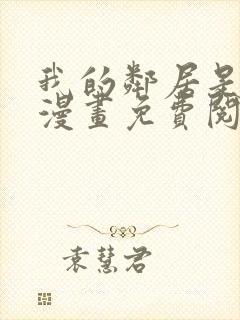 我的鄰居是
漫畫免費閱
袁慧君